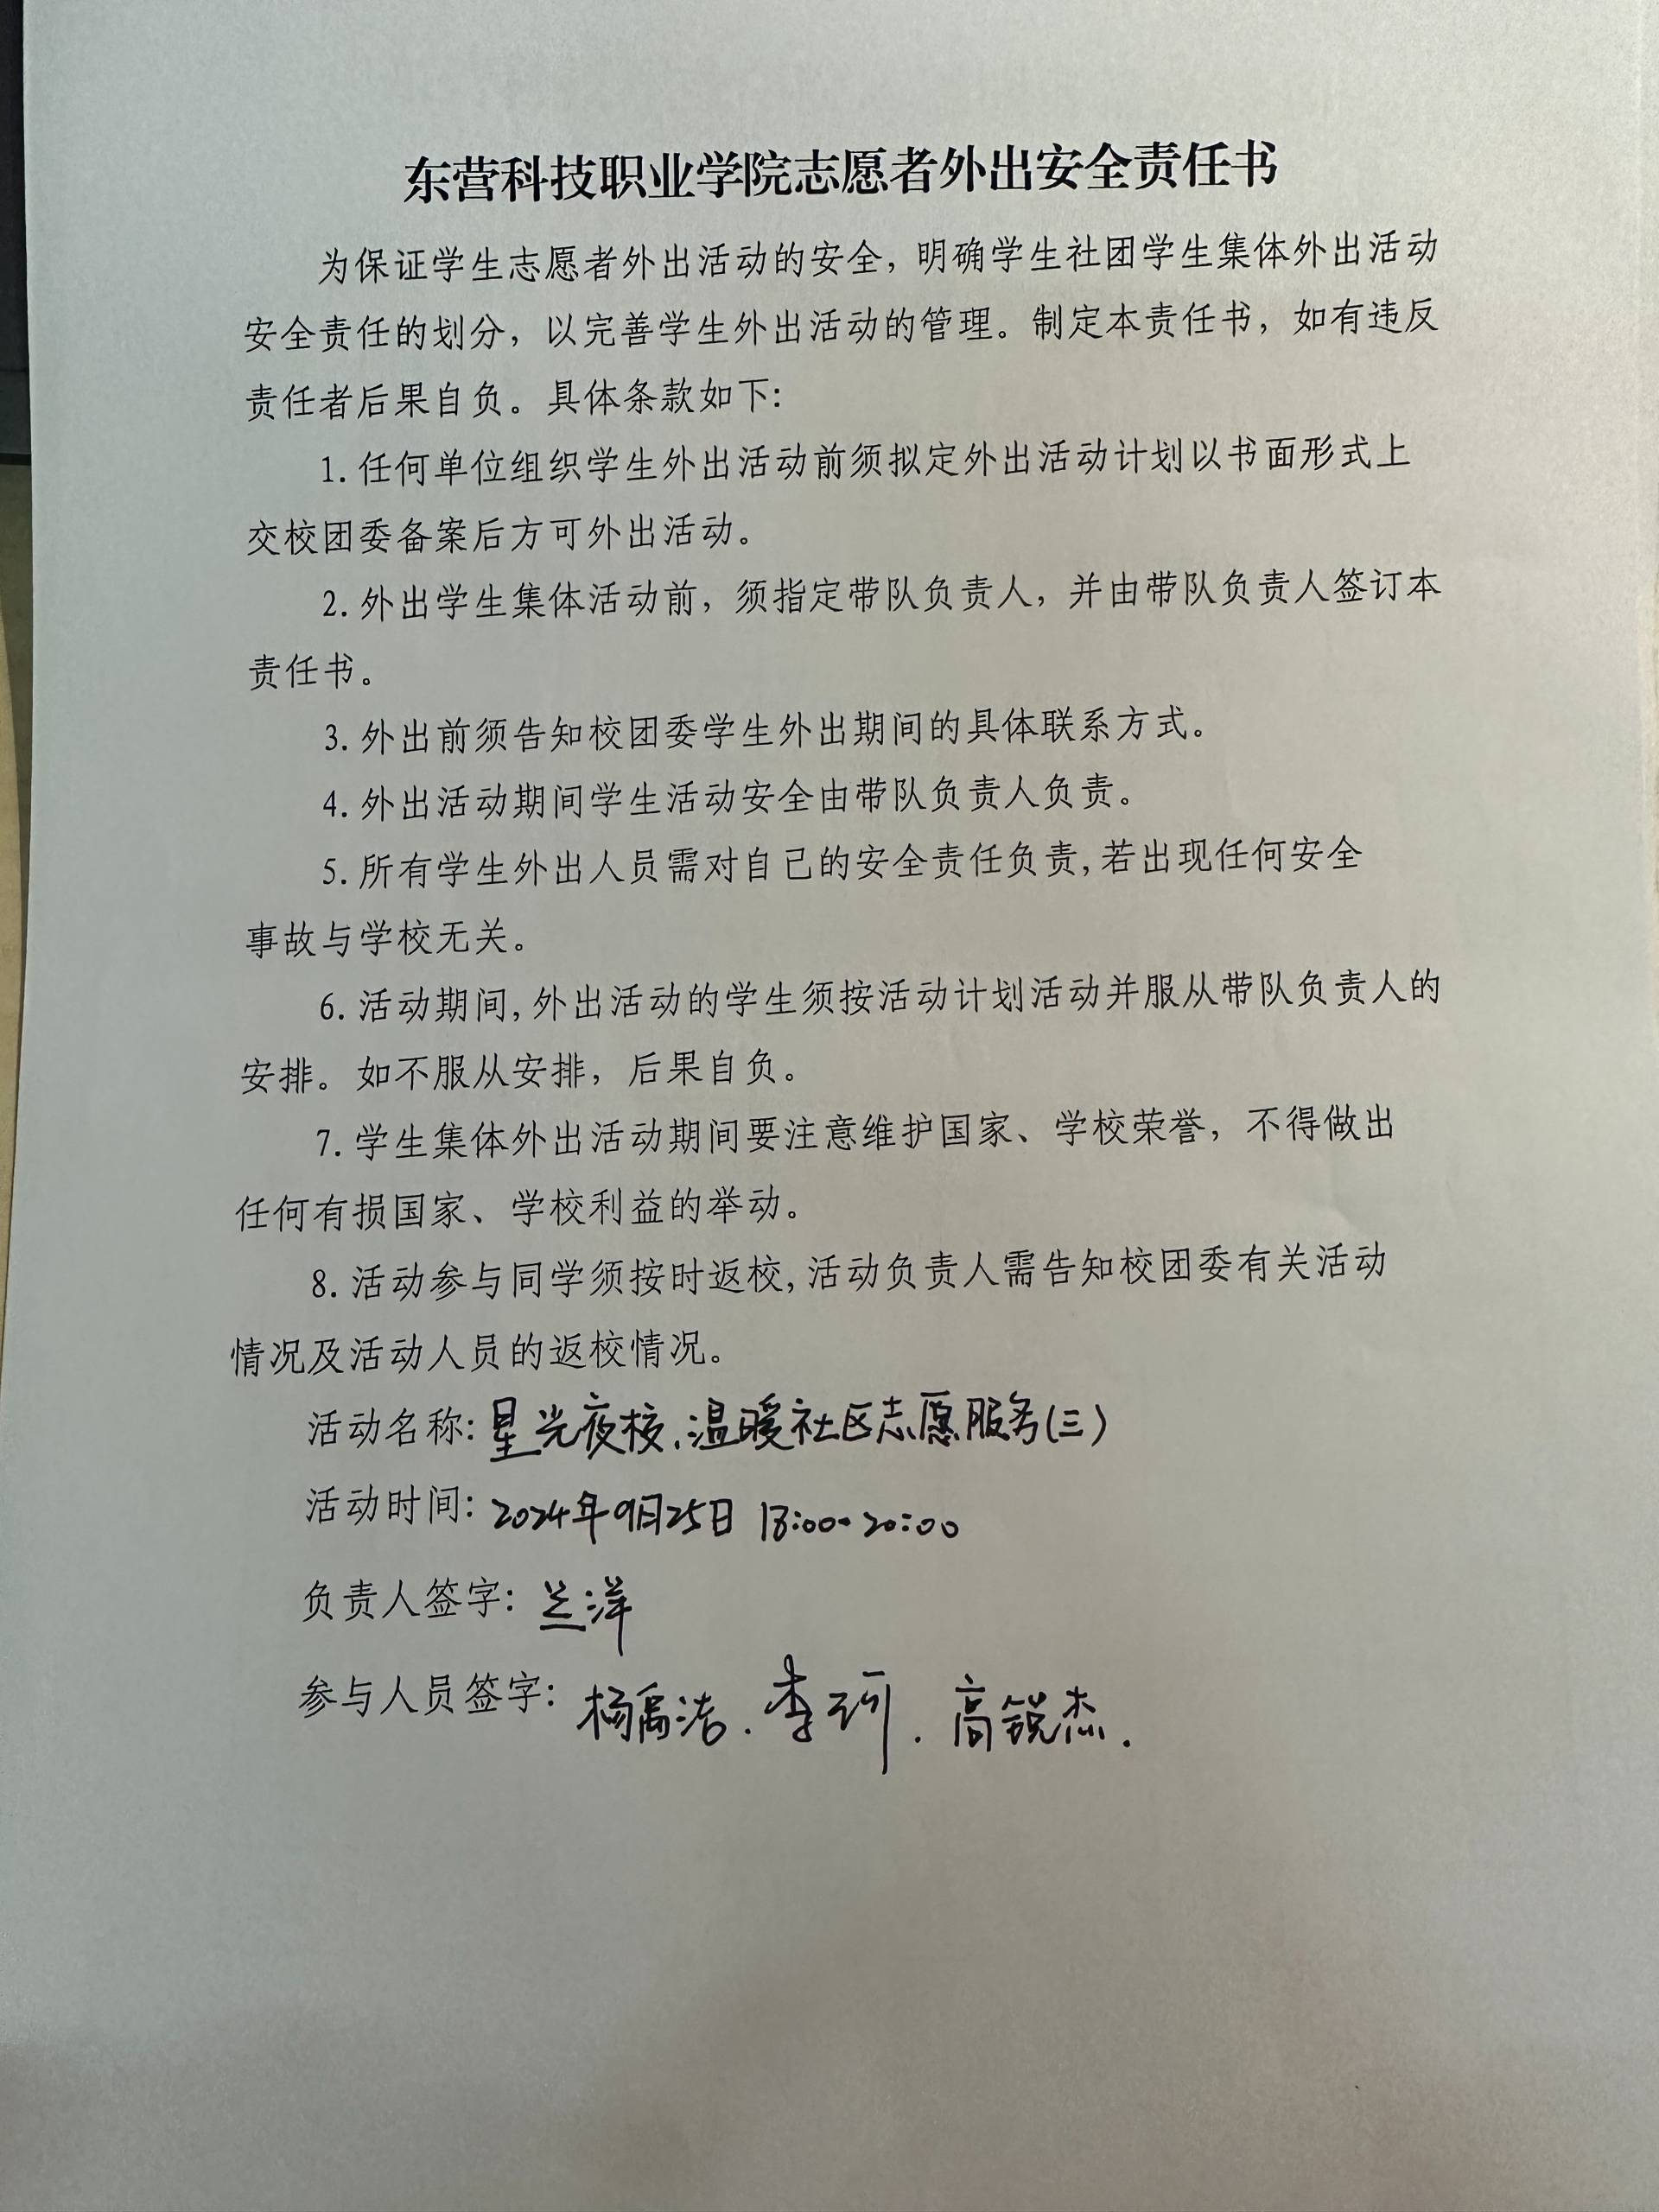 东营科技职业学院志愿者外出安全责任书
为保证学生志愿者外出活动的安全，明确学生社团学生集体外出活动
安全责任的划分，以完善学生外出活动的管理。制定本责任书，如有违反
责任者后果自负。具体条款如下:
1.任何单位组织学生外出活动前须拟定外出活动计划以书面形式上
交校团委备案后方可外出活动。
2.外出学生集体活动前，须指定带队负责人，并由带队负责人签订本
责任书。
3.外出前须告知校团委学生外出期间的具体联系方式。
4.外出活动期间学生活动安全由带队负责人负责。
5.所有学生外出人员需对自己的安全责任负责,若出现任何安全
事故与学校无关。
6.活动期间,外出活动的学生须按活动计划活动并服从带队负责人的
安排。如不服从安排，后果自负。
7.学生集体外出活动期间要注意维护国家、学校荣誉，不得做出
任何有损国家、学校利益的举动。
8.活动参与同学须按时返校,活动负责人需告知校团委有关活动
情况及活动人员的返校情况。
活动名称:星光夜校.温暖社区志愿服务(三)
活动时间:2024年9月25日 18:00-20:00
负责人签字:兰洋
参与人员签字:杨禹洁.李珂.高锐杰.